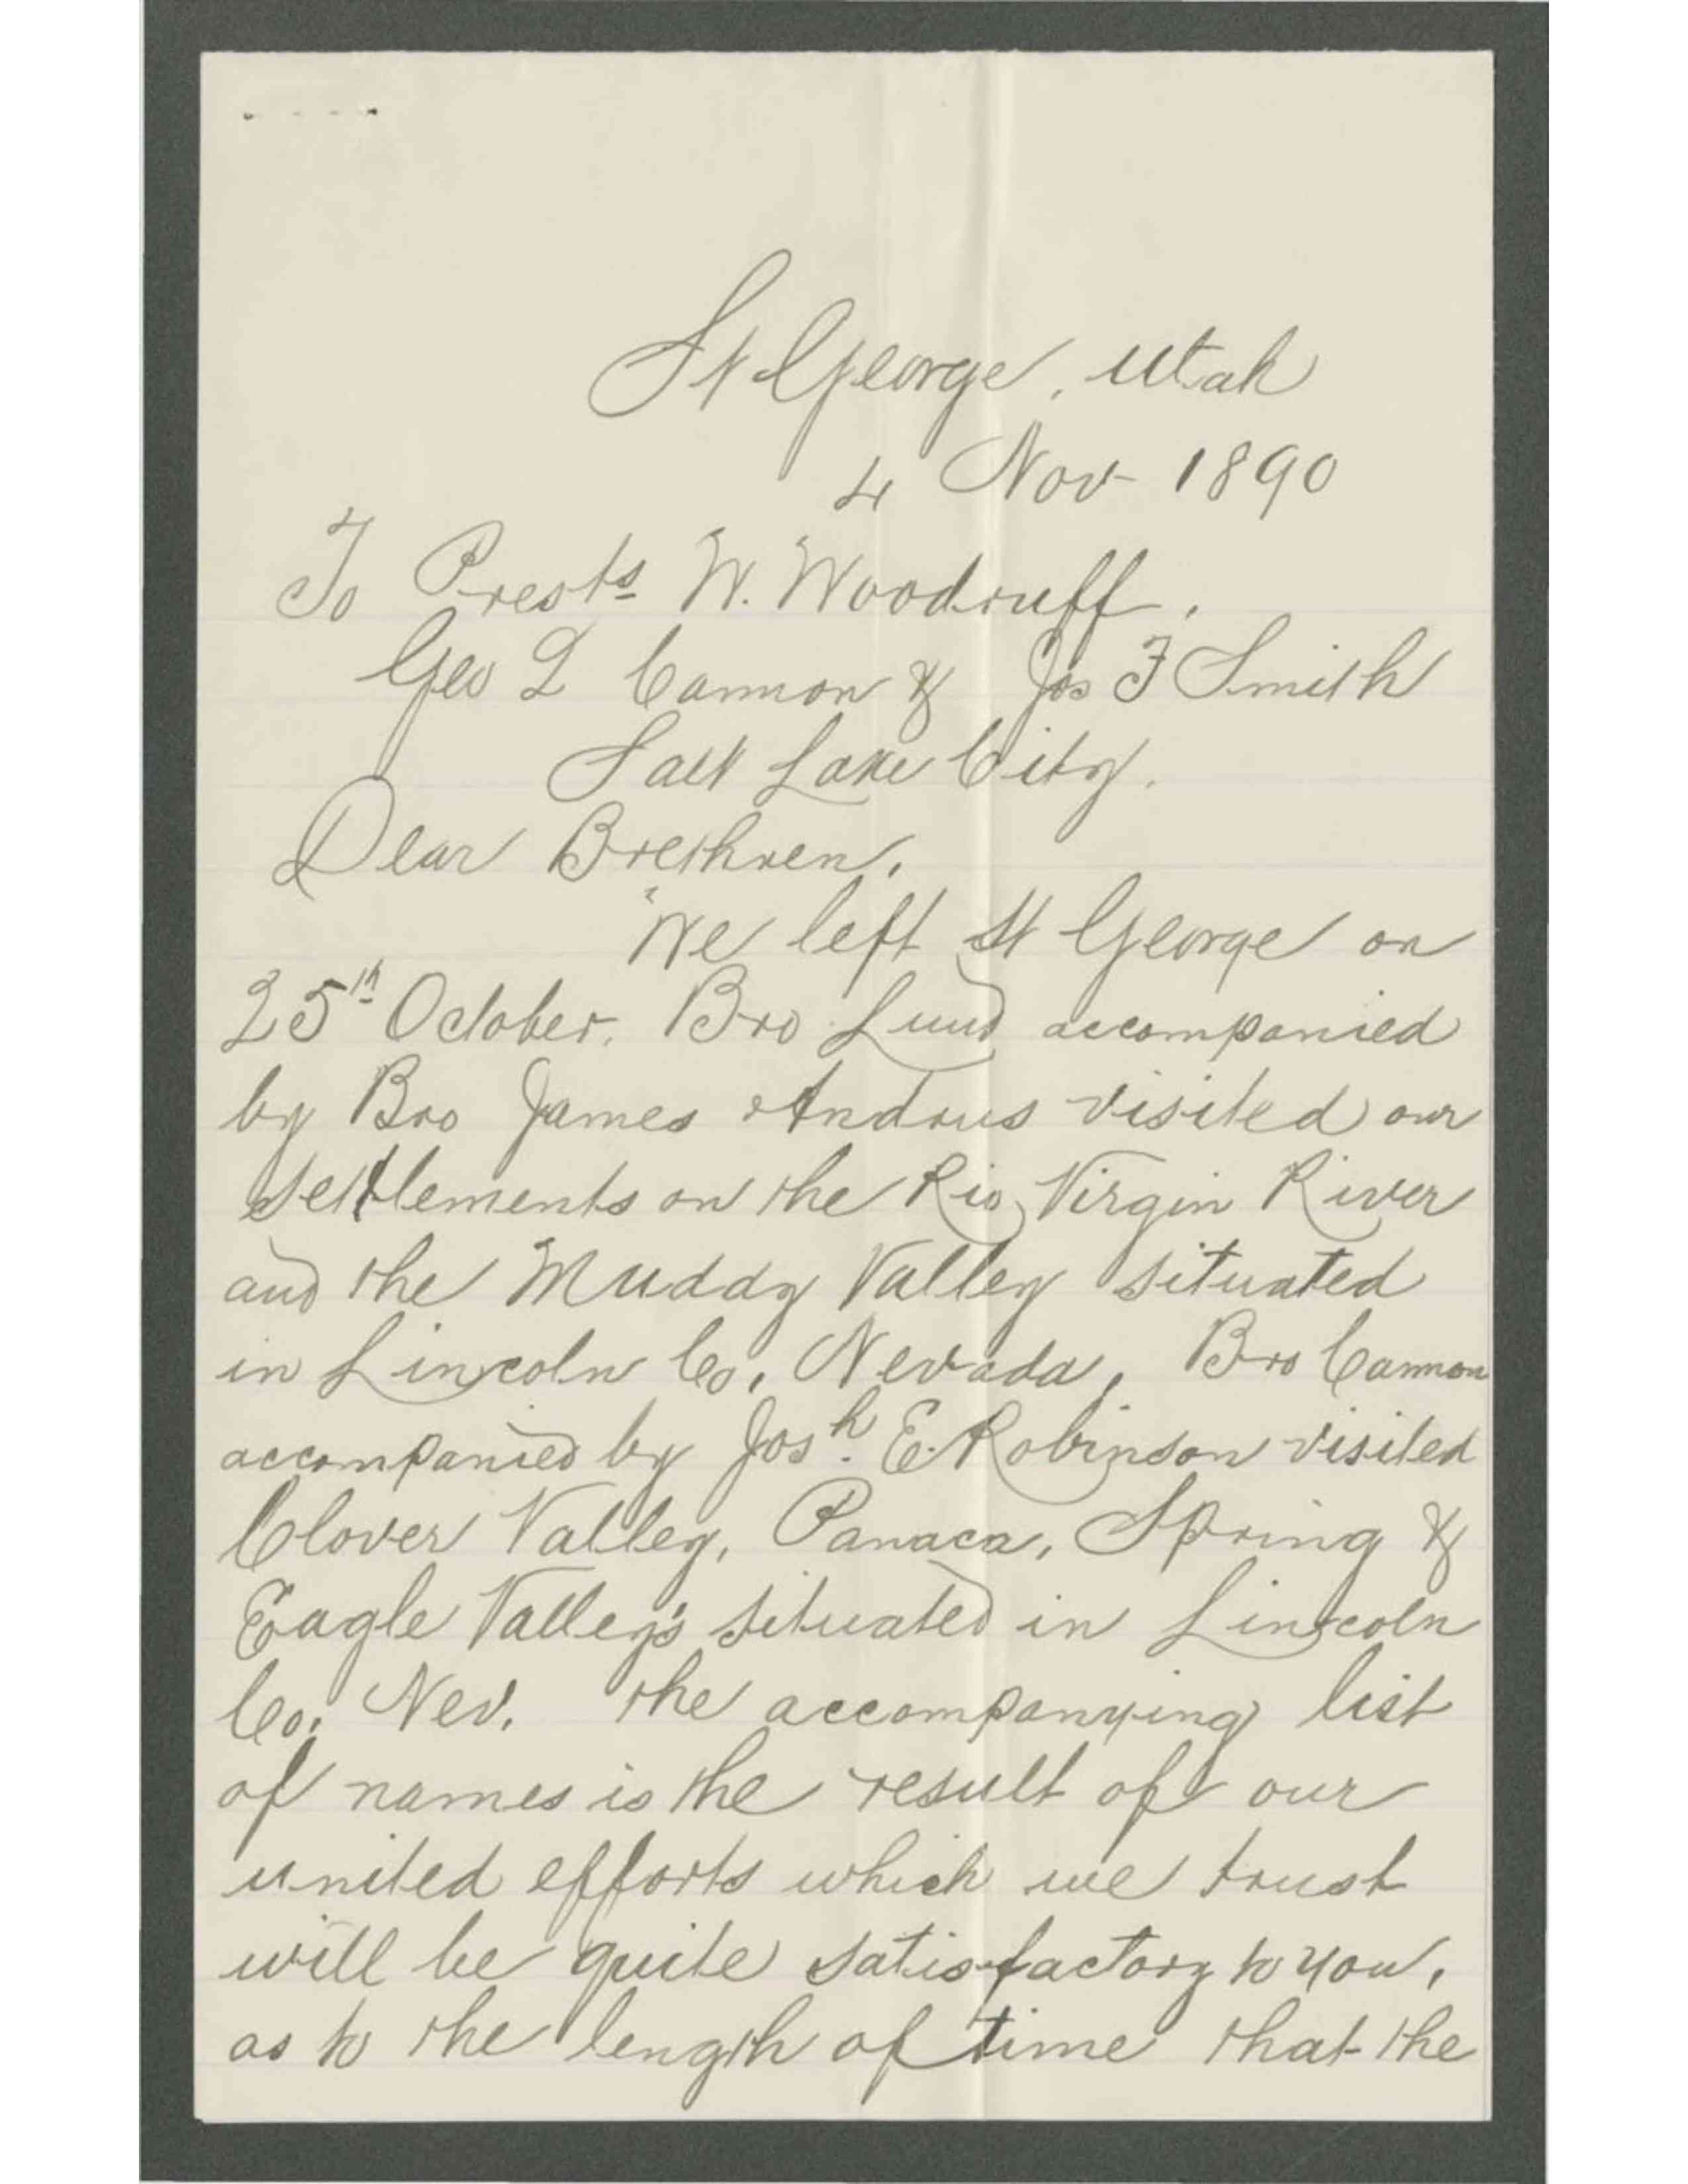 St George, Utah
4 Nov 1890
To Prests W. Woodruff.
Geo Q Cannon & Jos F Smith
Salt Lake City.
Dear Brethren,
We left St George on
25th October. Bro Lund accompanied
by Bro James Andrus visited our
settlements on the Rio Virgin River
and the Muddy Valley situated
in Lincoln Co, Nevada, Bro Cannon
accompanied by Josh. E. Robinson visited
Clover Valley, Panaca, Spring &
Eagle Valley's situated in Lincoln
Co. Nev. the accompanying list
of names is the result of our
united efforts which we trust
will be quite satisfactory to you,
as to the length of time that the